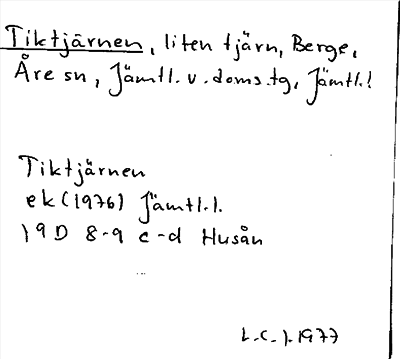 Tiktjärnen, liten tjärn, Berge,
Åre sn, Jämtl. v. doms.tg, Jämtl.l
Tiktjärnen
ek (1976) Jämtl.l.
19D 8-9 c-d Husån
L.C.J. 1977